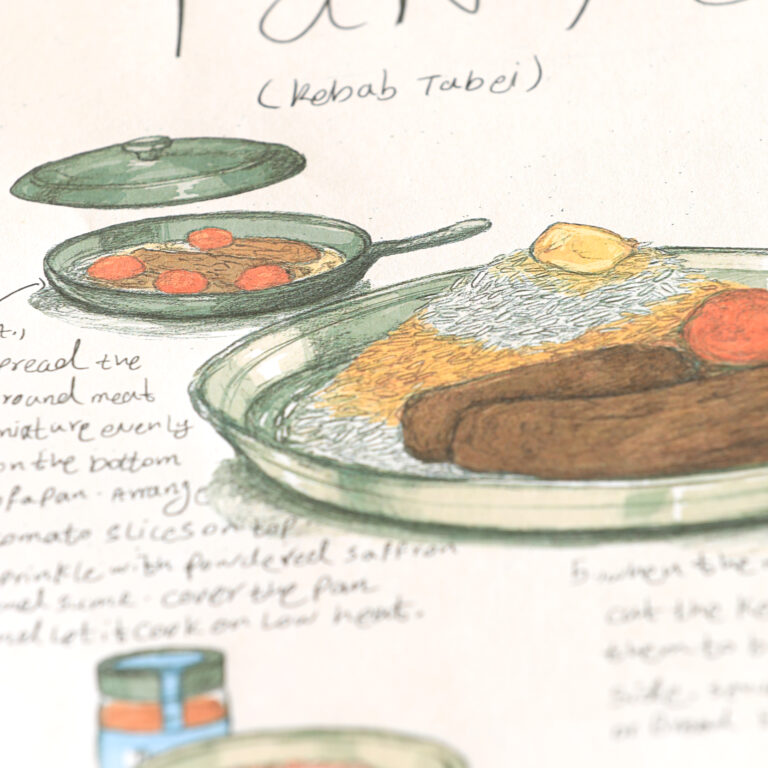 (Kebab Tabei)
t.,
pread the
round meat
mixture evenly
on the bottom
of a pan. Arrange
omato slices on top
prinkle with powdered saffron
cover the pan
let it cook on low heat.
5. when the
cut the Ke
them to b
side.